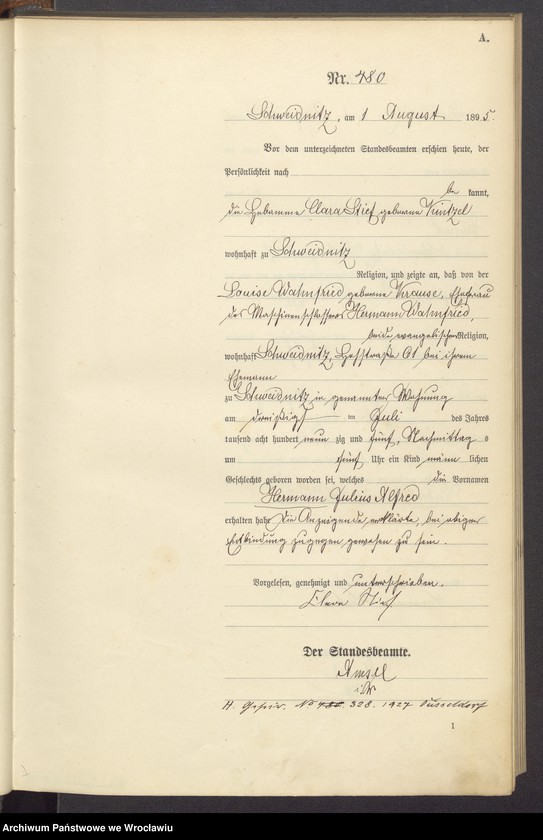 A.
Nr. 480
Schweidnitz, am 1 August 1895.
Vor dem unterzeichneten Standesbeamten erschien heute, der
Persönlichkeit nach
be kannt,
die Hebamme Clara Stief geborene Kintzel
wohnhaft zu Schweidnitz
Religion, und zeigte an, daß von der
Louise Wahnfried geborene Krause, Ehefrau
des Maschinenschlossers Hermann Wahnfried,
beide evangelischer Religion,
wohnhaft Schweidnitz, 61 bei ihrem
Ehemann
zu Schweidnitz in genannter Wohnung
am dreißigst en Juli des Jahres
tausend acht hundert neun zig und fünf, Nachmittag s
um fünf Uhr ein Kind männ lichen
Geschlechts geboren worden sei, welches die Vornamen
Hermann Julius Alfred
erhalten habe Die Anzeigende erklärte, bei obiger
Entbindung zugegen gewesen zu sein.
Vorgelesen, genehmigt und unterschrieben.
Clara Stief
Der Standesbeamte.
Amsel
i.V.
H. No 480. 328. 1927 Düsseldorf
1
Archiwum Państwowe we Wrocławiu